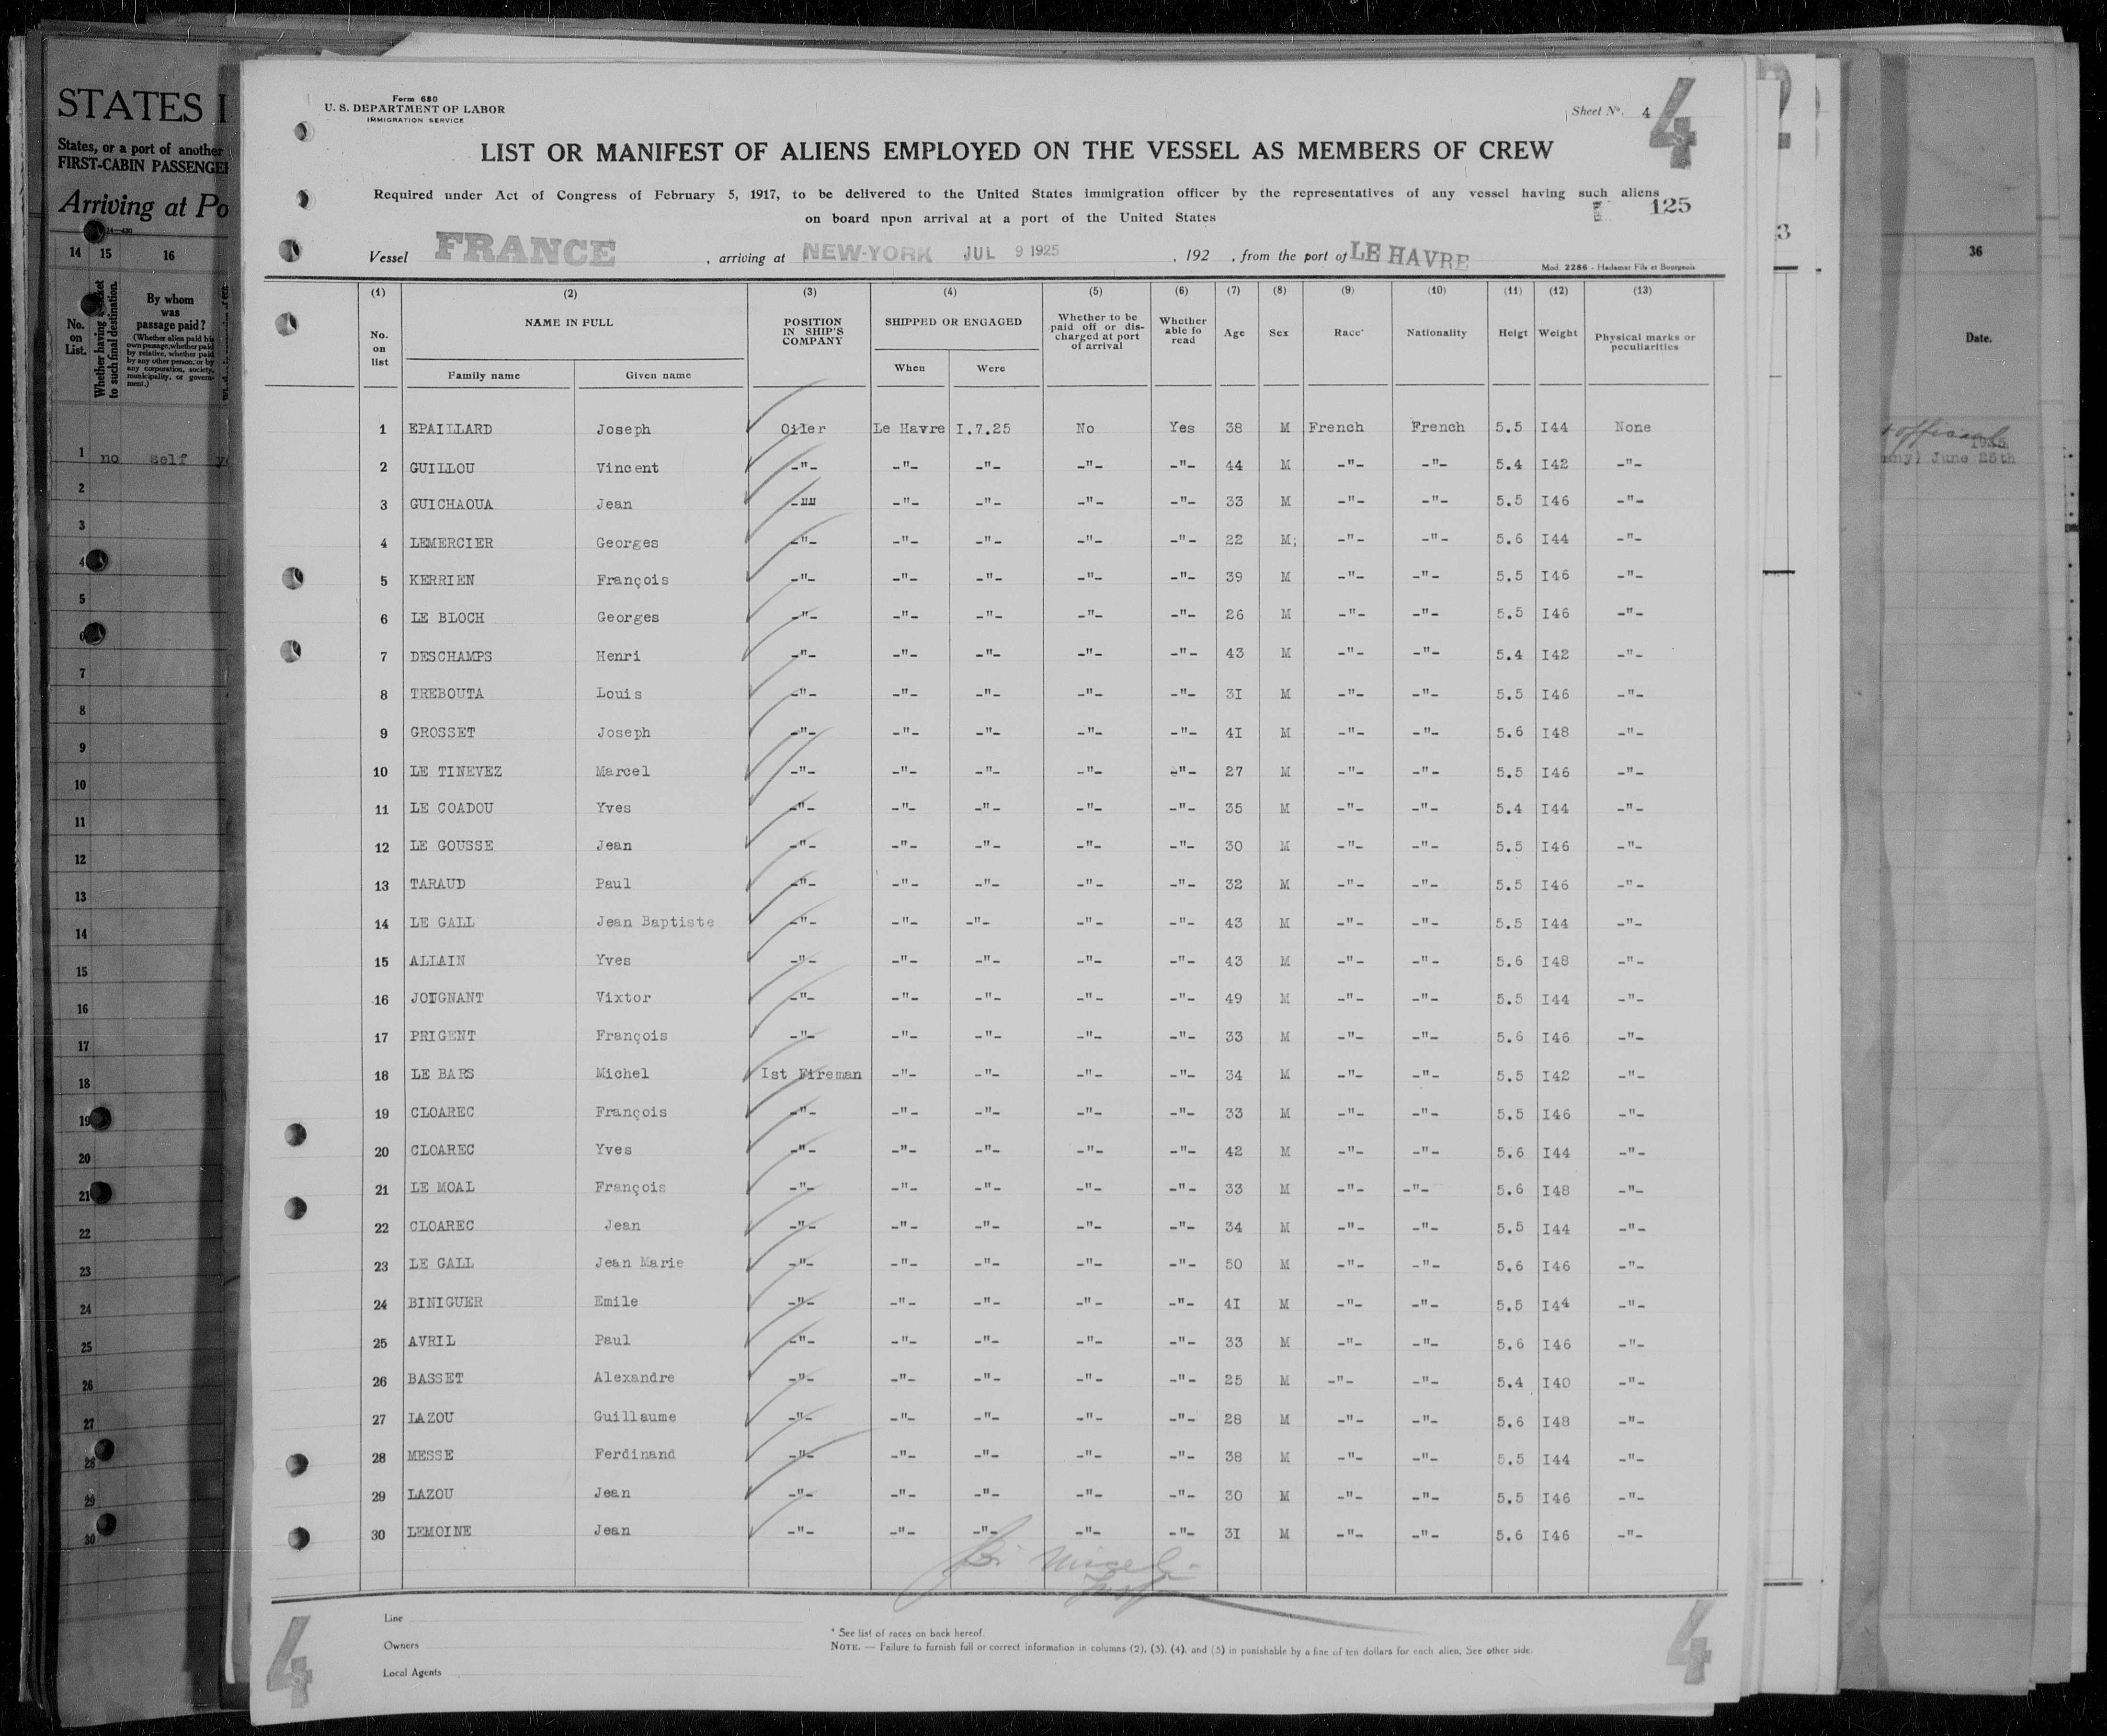 STATES I
States, or a port of another
FIRST-CABIN PASSENGE
Arriving at Po
14 15 16
No. on List.
Whether having
to such final destination.
By whom
was
passage paid?
(Whether alien paid his
own passage, whether paid
by relative, whether paid
by any other person, or by
any corporation, society,
municipality, or govern-
ment.)
1 no self
2
3
4
5
6
7
8
9
10
11
12
13
14
15
16
17
18
19
20
21
22
23
24
25
26
27
28
29
30
Form 680
U. S. DEPARTMENT OF LABOR
IMMIGRATION SERVICE
Sheet No. 4
4
LIST OR MANIFEST OF ALIENS EMPLOYED ON THE VESSEL AS MEMBERS OF CREW
Required under Act of Congress of February 5, 1917, to be delivered to the United States immigration officer by the representatives of any vessel having such aliens
on board npon arrival at a port of the United States
125
Vessel FRANCE , arriving at NEW-YORK JUL 9 1925 , 192 , from the port of LE HAVRE
Mod. 2286 - Hadamar Fils et Bourgeois
(1) (2) (3) (4) (5) (6) (7) (8) (9) (10) (11) (12) (13)
No. on list
NAME IN FULL
Family name Given name
POSITION IN SHIP'S COMPANY
SHIPPED OR ENGAGED
When Were
Whether to be paid off or dis-charged at port of arrival
Whether able fo read
Age Sex Race* Nationality Heigt Weight
Physical marks or peculiarities
1 EPAILLARD Joseph Oiler Le Havre I.7.25 No Yes 38 M French French 5.5 I44 None
2 GUILLOU Vincent -"- -"- -"- -"- -"- 44 M -"- -"- 5.4 I42 -"-
3 GUICHAOUA Jean -"" -"- -"- -"- -"- 33 M -"- -"- 5.5 I46 -"-
4 LEMERCIER Georges -"- -"- -"- -"- -"- 22 M; -"- -"- 5.6 I44 -"-
5 KERRIEN François -"- -"- -"- -"- -"- 39 M -"- -"- 5.5 I46 -"-
6 LE BLOCH Georges -"- -"- -"- -"- -"- 26 M -"- -"- 5.5 I46 -"-
7 DESCHAMPS Henri -"- -"- -"- -"- -"- 43 M -"- -"- 5.4 I42 -"-
8 TREBOUTA Louis -"- -"- -"- -"- -"- 3I M -"- -"- 5.5 I46 -"-
9 GROSSET Joseph -"- -"- -"- -"- -"- 4I M -"- -"- 5.6 I48 -"-
10 LE TINEVEZ Marcel -"- -"- -"- -"- -"- 27 M -"- -"- 5.5 I46 -"-
11 LE COADOU Yves -"- -"- -"- -"- -"- 35 M -"- -"- 5.4 I44 -"-
12 LE GOUSSE Jean -"- -"- -"- -"- -"- 30 M -"- -"- 5.5 I46 -"-
13 TARAUD Paul -"- -"- -"- -"- -"- 32 M -"- -"- 5.5 I46 -"-
14 LE GALL Jean Baptiste -"- -"- -"- -"- -"- 43 M -"- -"- 5.5 I44 -"-
15 ALLAIN Yves -"- -"- -"- -"- -"- 43 M -"- -"- 5.6 I48 -"-
16 JOIGNANT Vixtor -"- -"- -"- -"- -"- 49 M -"- -"- 5.5 I44 -"-
17 PRIGENT François -"- -"- -"- -"- -"- 33 M -"- -"- 5.6 I46 -"-
18 LE BARS Michel Ist Fireman -"- -"- -"- -"- 34 M -"- -"- 5.5 I42 -"-
19 CLOAREC François -"- -"- -"- -"- -"- 33 M -"- -"- 5.5 I46 -"-
20 CLOAREC Yves -"- -"- -"- -"- -"- 42 M -"- -"- 5.6 I44 -"-
21 LE MOAL François -"- -"- -"- -"- -"- 33 M -"- -"- 5.6 I48 -"-
22 CLOAREC Jean -"- -"- -"- -"- -"- 34 M -"- -"- 5.5 I44 -"-
23 LE GALL Jean Marie -"- -"- -"- -"- -"- 50 M -"- -"- 5.6 I46 -"-
24 BINIGUER Emile -"- -"- -"- -"- -"- 4I M -"- -"- 5.5 I44 -"-
25 AVRIL Paul -"- -"- -"- -"- -"- 33 M -"- -"- 5.6 I46 -"-
26 BASSET Alexandre -"- -"- -"- -"- -"- 25 M -"- -"- 5.4 I40 -"-
27 LAZOU Guillaume -"- -"- -"- -"- -"- 28 M -"- -"- 5.6 I48 -"-
28 MESSE Ferdinand -"- -"- -"- -"- -"- 38 M -"- -"- 5.5 I44 -"-
29 LAZOU Jean -"- -"- -"- -"- -"- 30 M -"- -"- 5.5 I46 -"-
30 LEMOINE Jean -"- -"- -"- -"- -"- 3I M -"- -"- 5.6 I46 -"-
Line
Owners
Local Agents
* See list of races on back hereof.
NOTE. — Failure to furnish full or correct information in columns (2), (3), (4), and (5) in punishable by a fine of ten dollars for each alien. See other side.
4
4
2
3
36
Date.
official
1925
June 25th